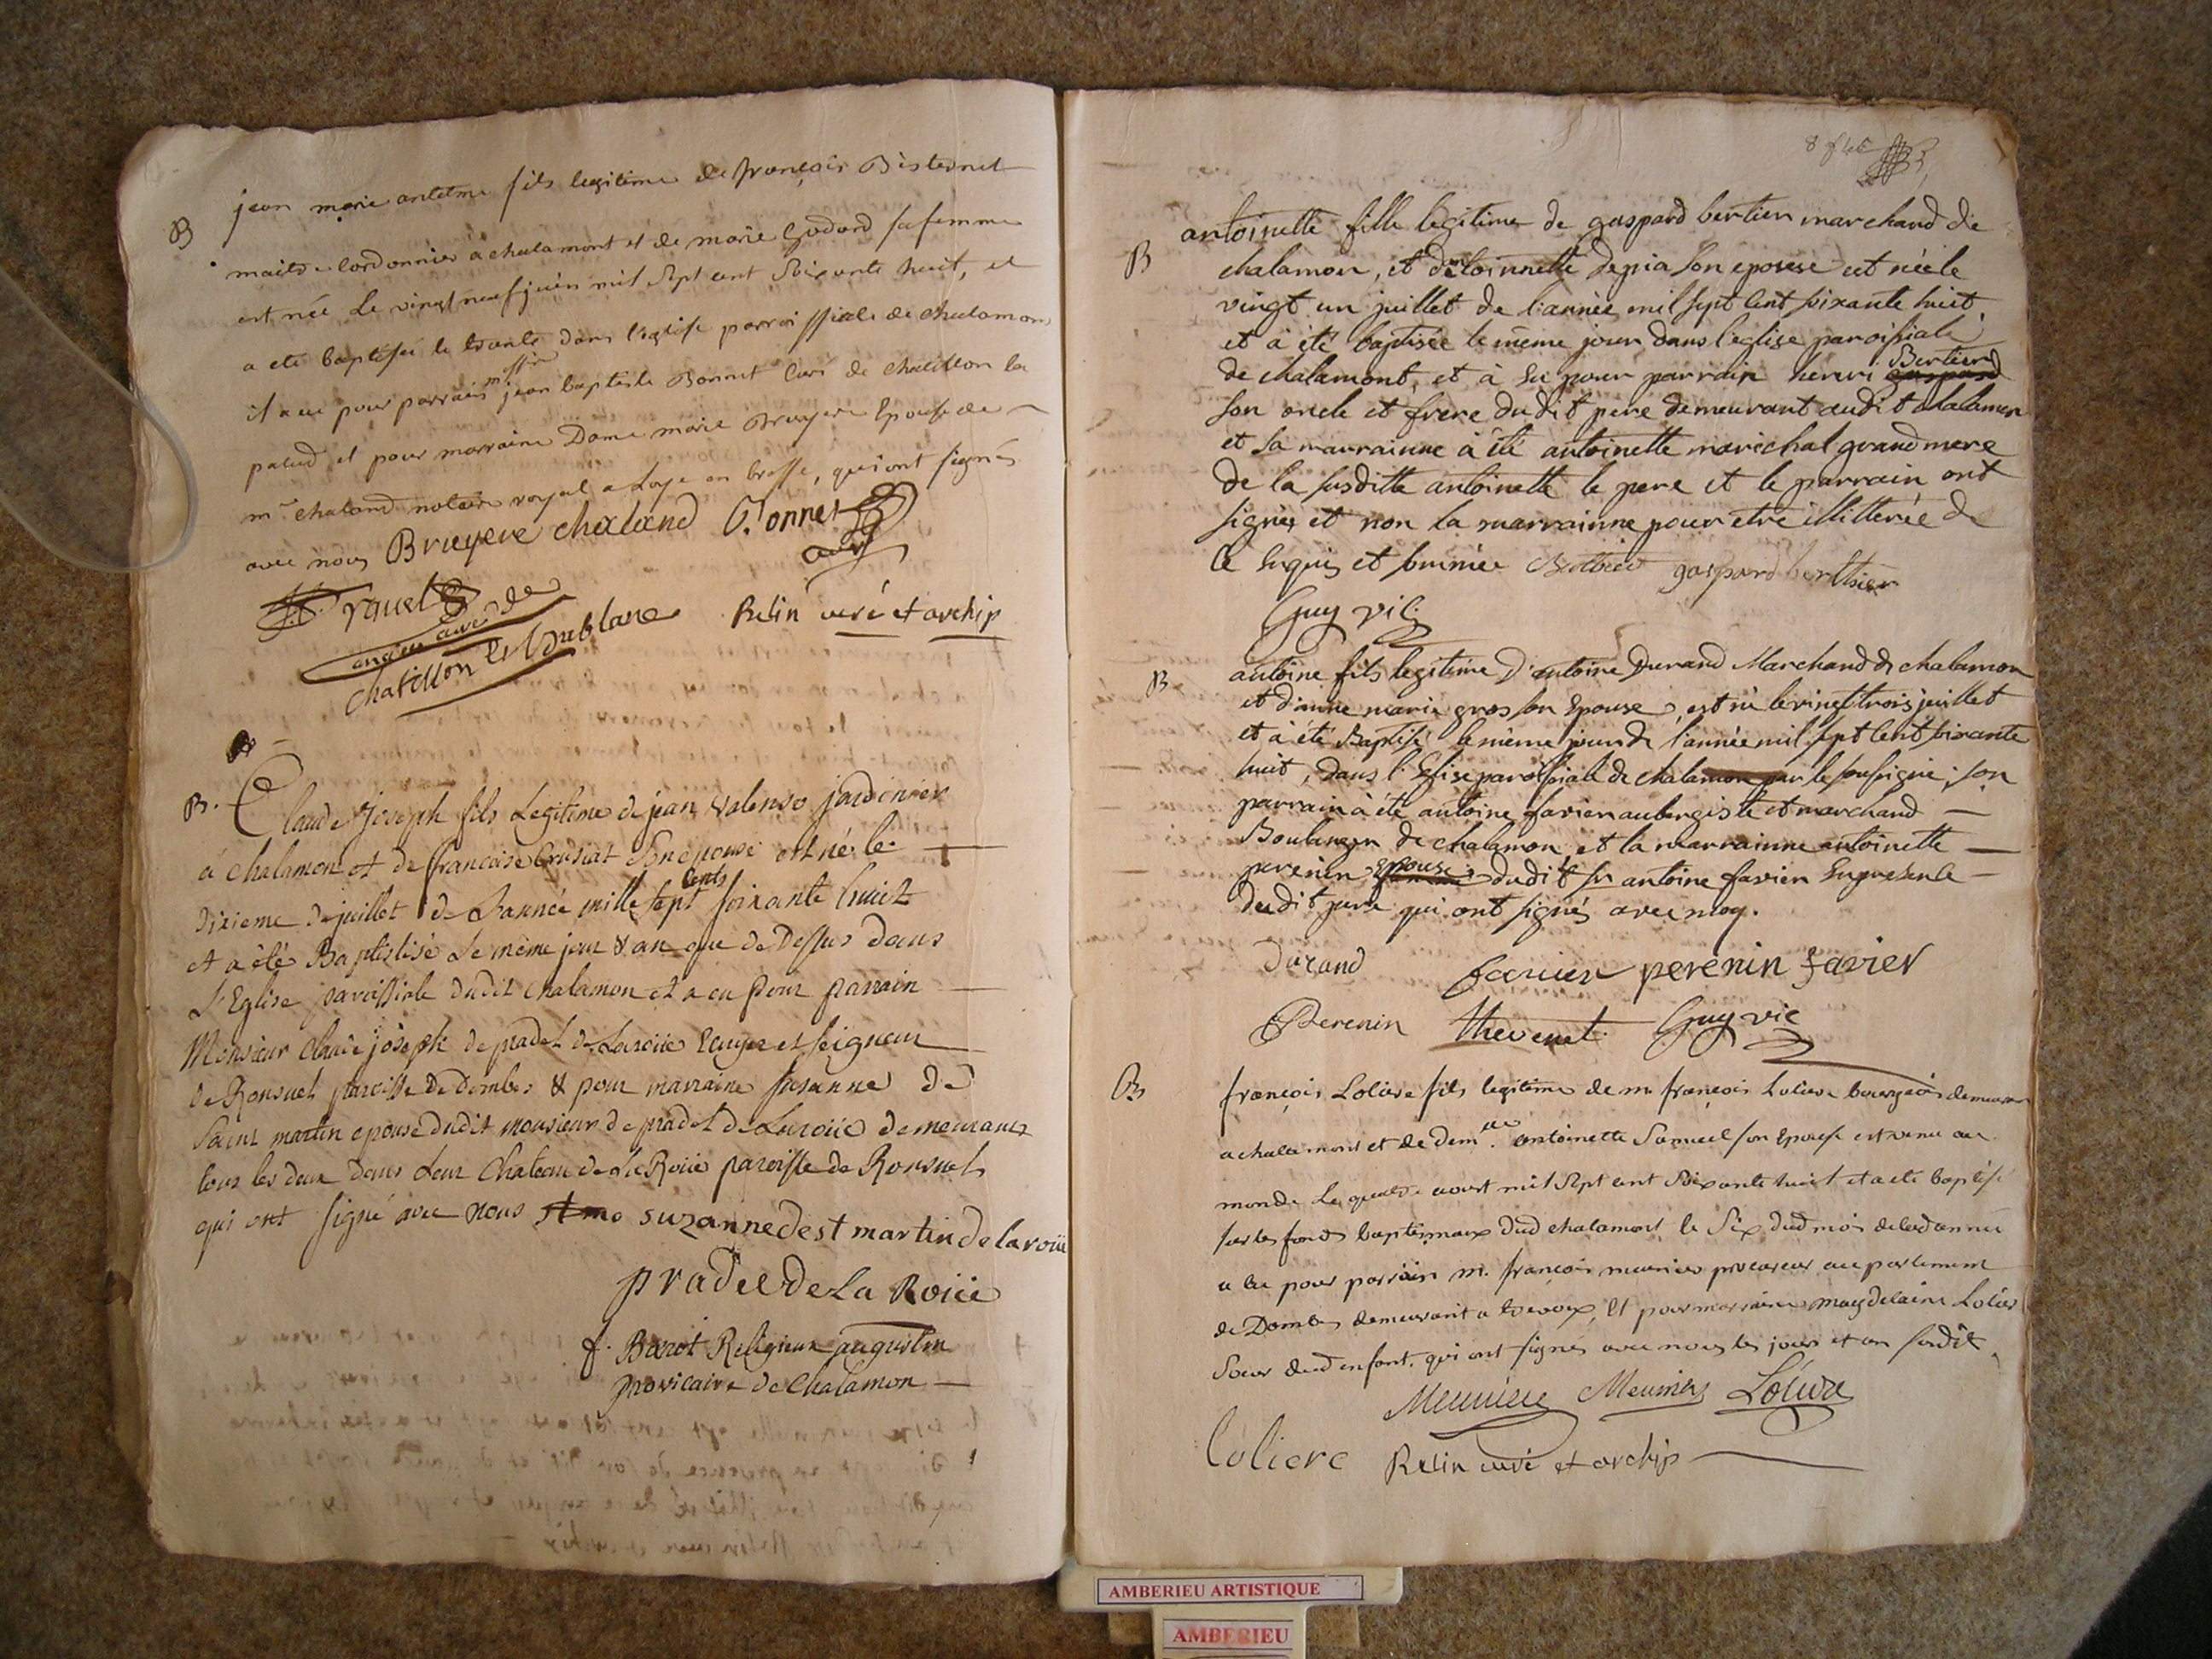 B jean marie antelme fils legitime de françois Bisternet
maitre Cordonnier a chalamont et de marie Godard sa femme
est née Le vingt neuf juin mil sept cent soixante huit, et
a eté baptisé le trente dans l'eglise parroissiale de chalamont
il a eu pour parrain messire jean baptiste Bonnet Curé de chatillon la
palud et pour marraine Dame marie Bruyere Epouse de
mr chaland notaire royal a Loye en bresse, qui ont signés
avec nous Bruyere chaland Bonnet
curé
ancien curé de
chatillon
Relin curé et archip
B. Claude Joseph fils Legitime de jean valenso jardinier
à chalamon et de francoise Crusiat Son epouse est né le
dixieme de juillet de L'année mille sept cents soixante huict
et a êté Baptistisé Le même jour & an que de Dessus dans
L'Eglise paroissiale dudit chalamon et a eu pour parrain
Monsieur Claude joseph de pradel de Laroüe Ecuyer et seigneur
de Ronsuel paroisse de dombes & pour marraine susanne de
Saint martin epouse dudit monsieur de pradel de Laroüe demeurants
tous les deux dans Leur Chateau de la Roüe paroisse de Ronsuel
qui ont signé avec nous suzanne de st martin de la roüe
pradel de La Roüe
f. Barot Religieux augustin
provicaire de Chalamon
B antoinette fille legitime de gaspard bertier marchand de
chalamon, et d'antoinnette depria son epouse est née le
vingt un juillet de l'année mil sept cent soixante huit,
et à été baptisée le même jour dans l'eglise paroissiale
de chalamont, et à eu pour parrain henri Bertier
son oncle et frere dudit pere demeurant audit chalamon
et sa marrainne à été antoinette marichal grand mere
de la susditte antoinette le pere et le parrain ont
signés et non la marrainne pour etre illitterée de
ce enquis et sommée gaspard berthier
Guy vic.
B antoine fils legitime d'antoine Durand Marchand de chalamon
et d'anne marie gros son Epouse, est né le vingt trois juillet
et à été Baptisé le même jour de l'année mil sept cent soixante
huit, dans l'Eglise paroissiale de chalamon par le soussigné; son
parrain à été antoine favier aubergiste et marchand
Boulanger de chalamon et la marrainne antoinette
perenin epouse dudit sr antoine favier En presence
dudit pere qui ont signés avec moy.
Durand favier perenin favier
Perenin thevenet Guy vic
B françois Loliere fils legitime de m. françois Loliere bourgeois demeurant
a chalamont et de demlle. antoinette Samuel son Epouse est venu au
monde Le quatre aoust mil sept cent soixante huit et a eté baptisé
sur les fonds baptismaux dud chalamont le Six dud mois de lad année
a eu pour parrain m. françois meunier procureur au parlement
de Dombes demeurant a trevoux, et pour marraine magdelaine Loliere
Soeur dud enfant. qui ont signés avec nous les jours et an susdit
Meuniere Meunier Loliere
Loliere Relin curé et archip
AMBERIEU ARTISTIQUE
AMBERIEU